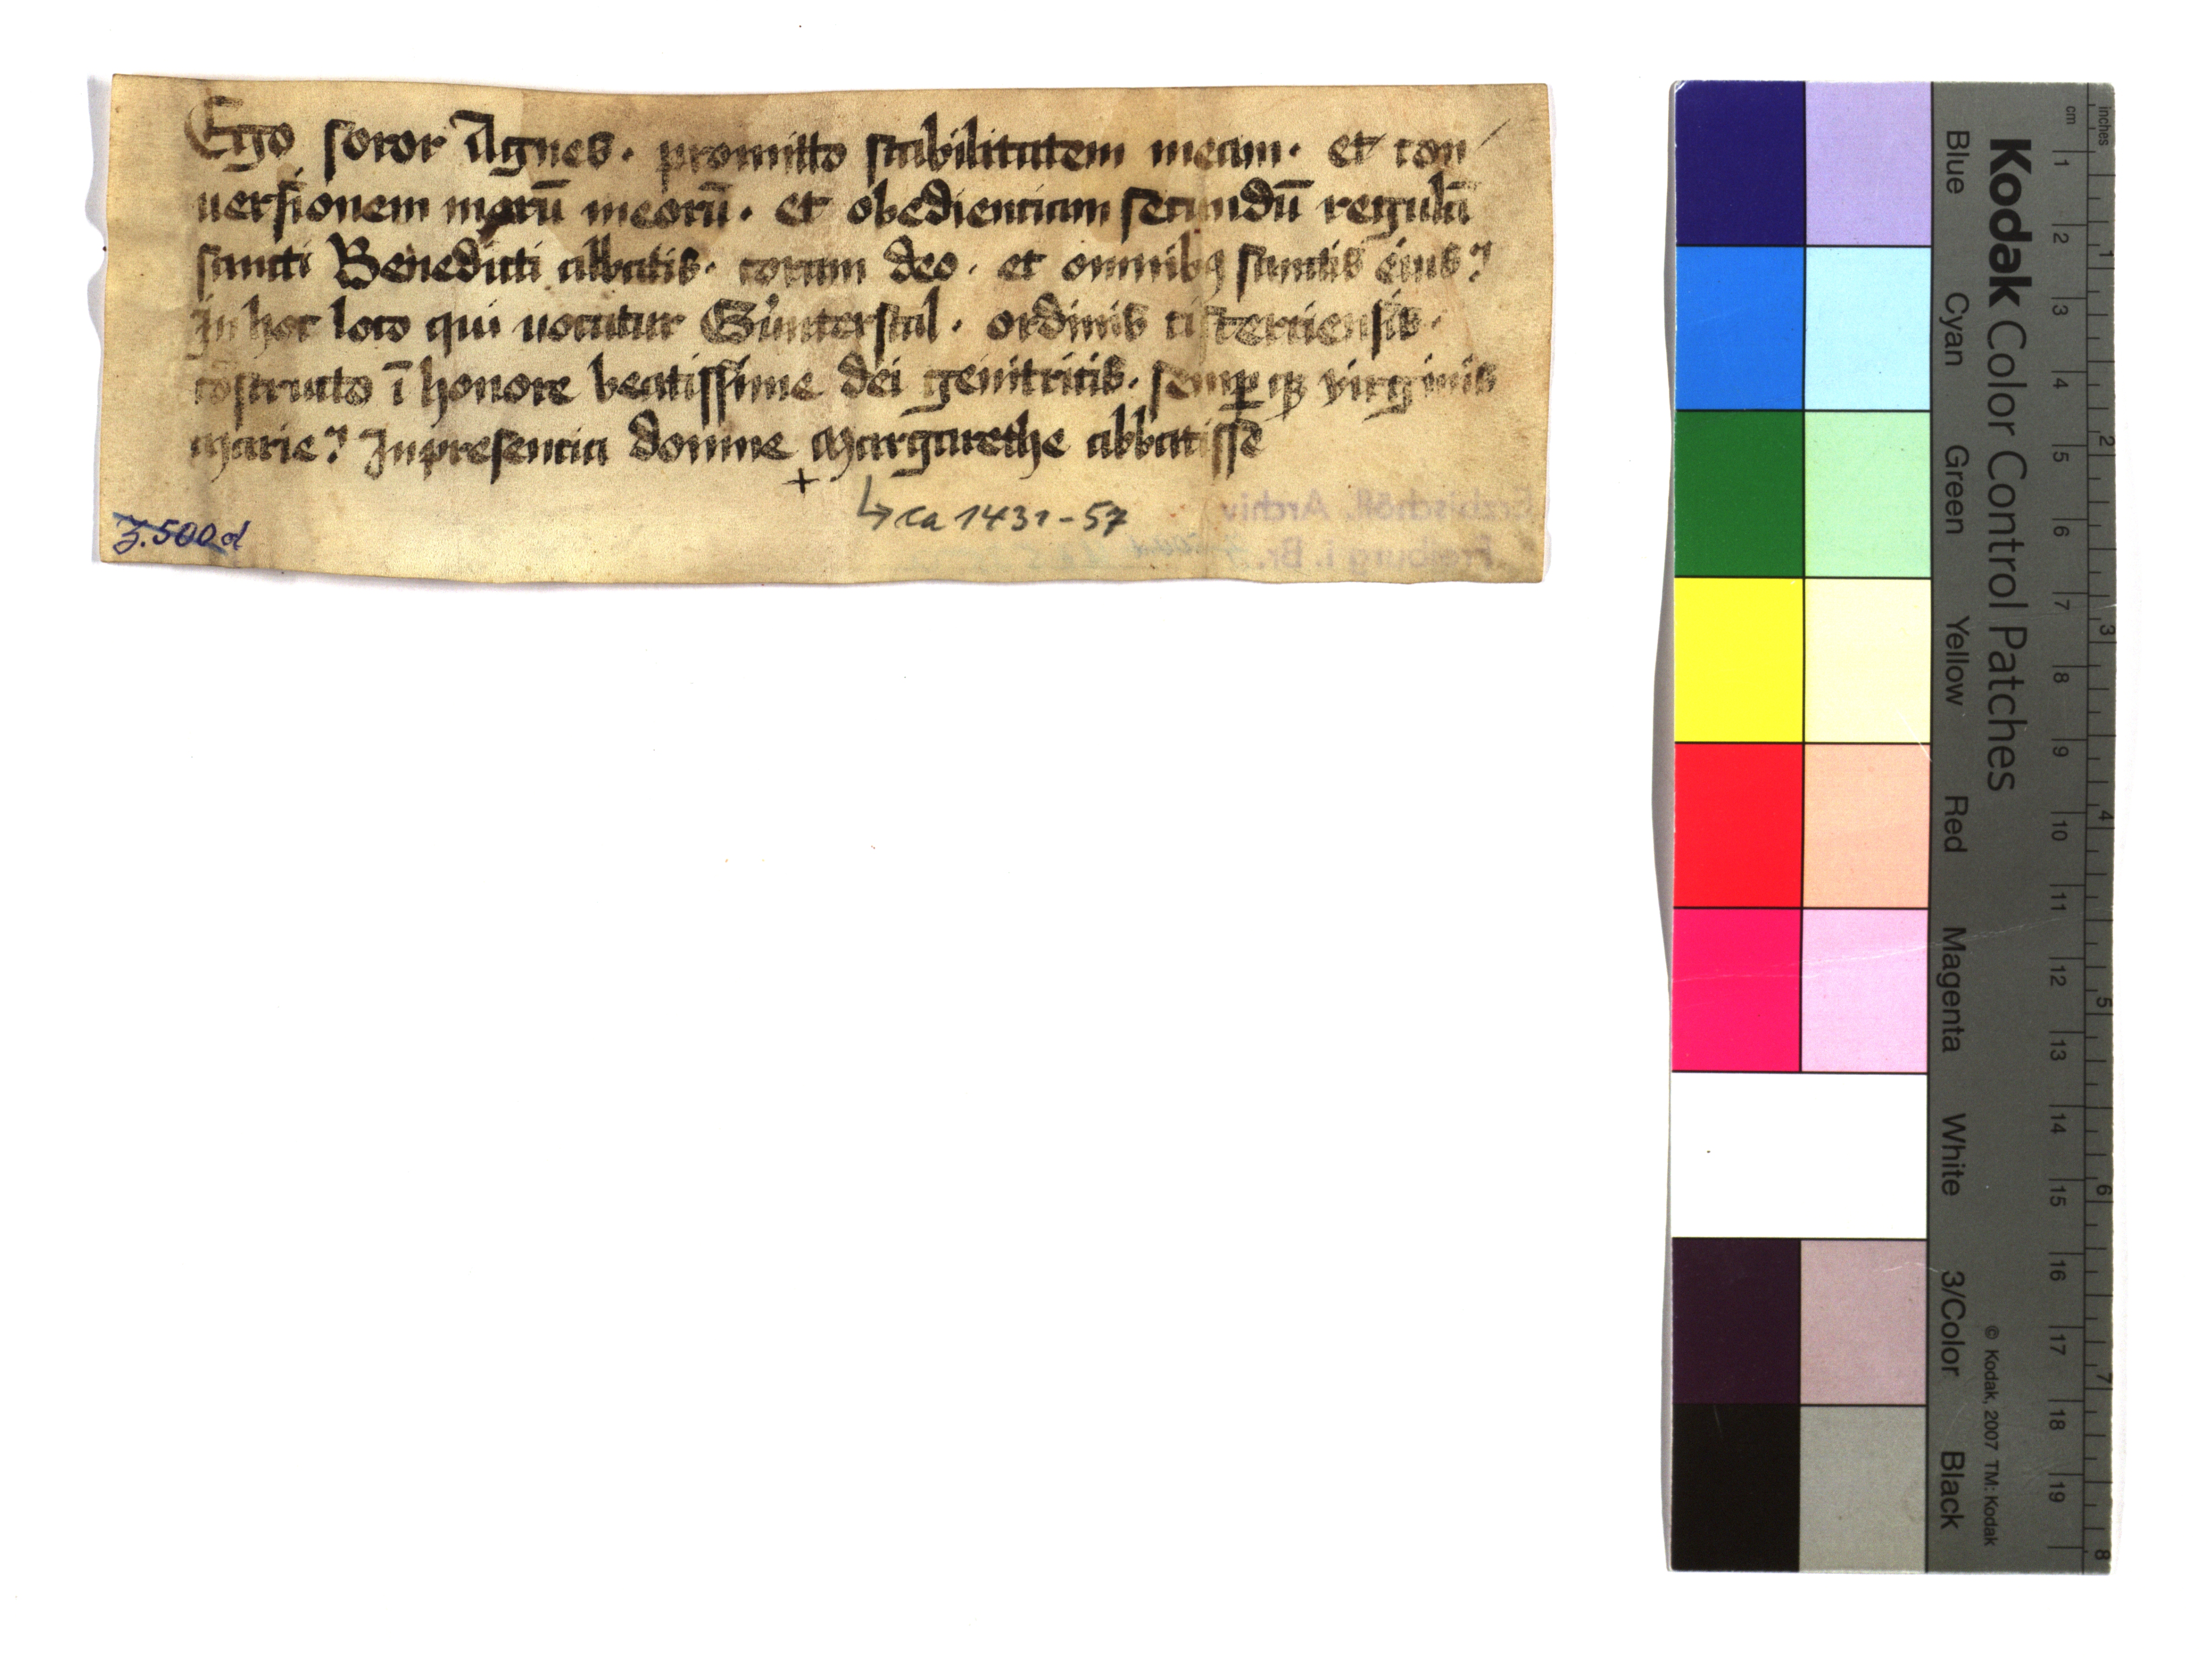 Ego soror Agnes. promitto stabilitatem meam. et con
uersionem morū meorū. et obedienciam secundū regulā
sancti Benedicti abbatis. coram deo. et omnibꝫ sanctis eius?
In hoc loco qui uocatur Gůnterstal. ordinis cisterciensis.
cōstructo ī honore beatissime dei genitricis. semꝑ qꝫ virginis
Marie? In presencia domine Margarethe abbatisse
+
↳ ca 1431-57
Z. 500 d
Erzbischöfl. Archiv
Freiburg i. Br.
Kodak Color Control Patches
© Kodak, 2007 TM: Kodak
Blue Cyan Green Yellow Red Magenta White 3/Color Black
cm 1 2 3 4 5 6 7 8 9 10 11 12 13 14 15 16 17 18 19
inches 1 2 3 4 5 6 7 8